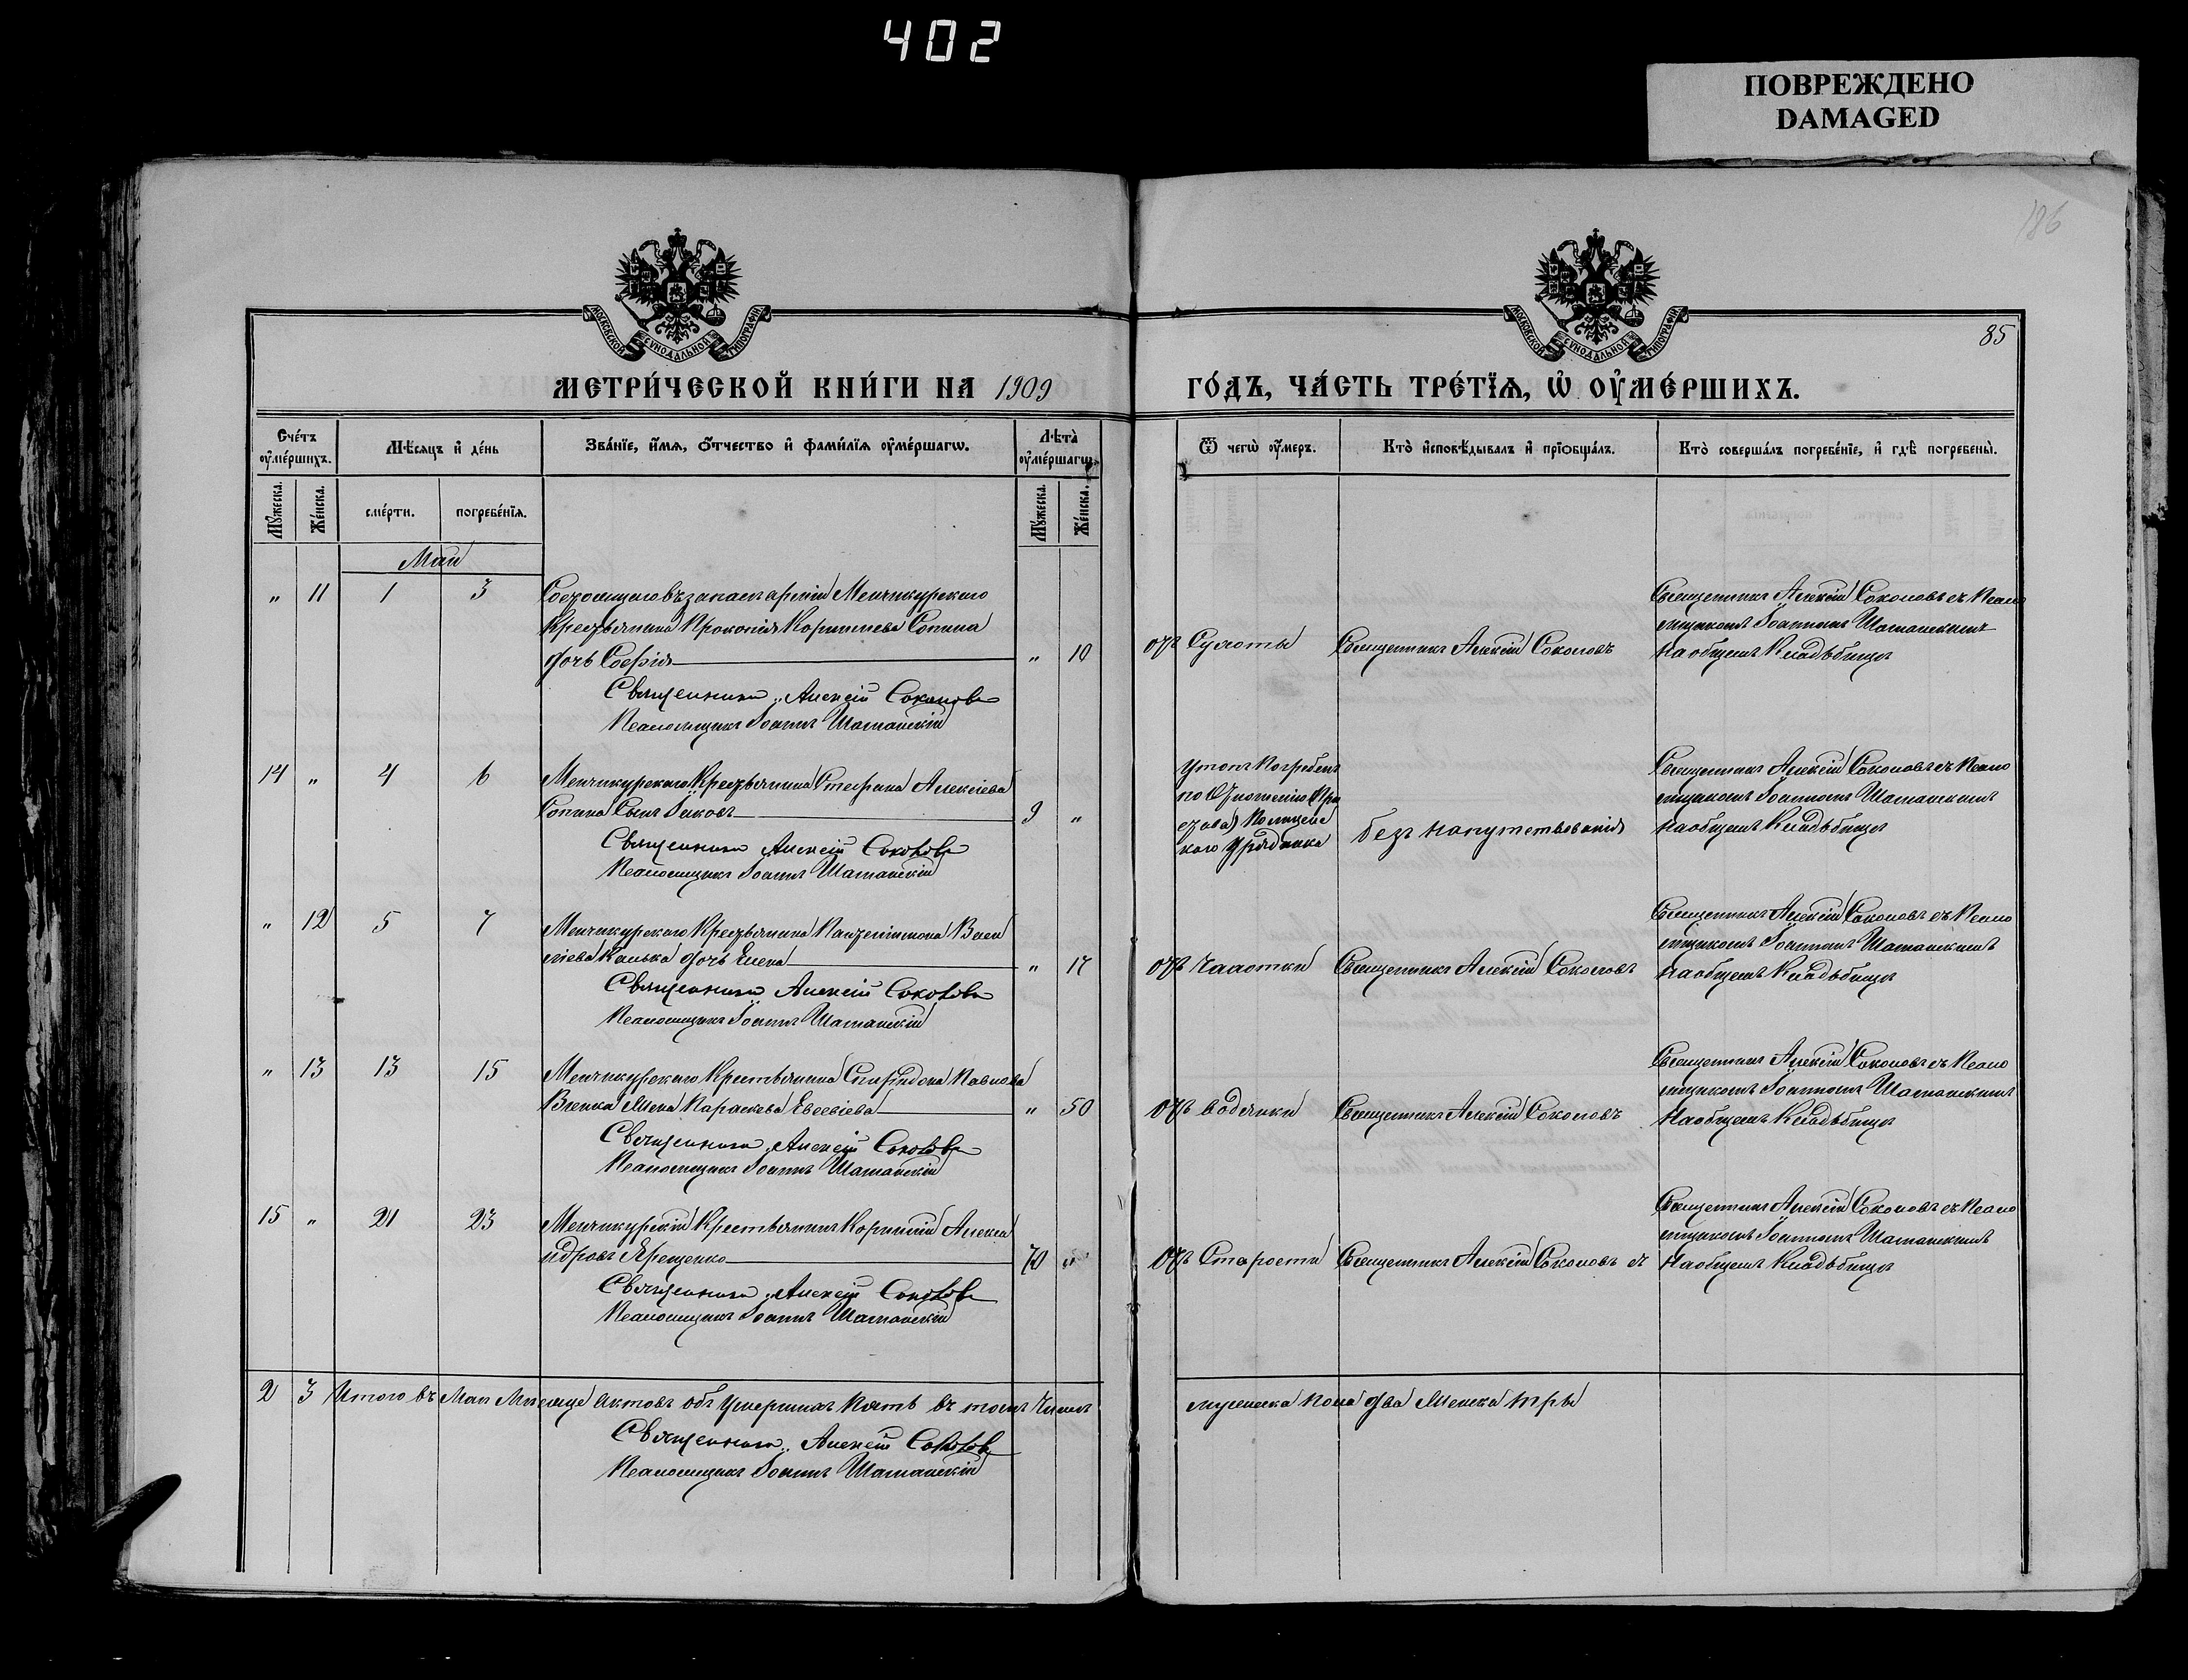 402
ПОВРЕЖДЕНО
DAMAGED
186
МОСКОВСКОЙ СѴНОДАЛЬНОЙ ТИПОГРАФІИ
МОСКОВСКОЙ СѴНОДАЛЬНОЙ ТИПОГРАФІИ
85
МЕТРИ́ЧЕСКОЙ КНИ́ГИ НА 1909 ГО́ДЪ, ЧА́СТЬ ТРЕ́ТЇѦ, Ѡ҆ ОУ҆МЕ́РШИХЪ.
Сче́тъ оу҆ме́ршихъ.
Мѣ́сѧцъ и҆ де́нь
Зва́нїе, и҆́мѧ, ѻ҆́тчество и҆ фами́лїѧ оу҆ме́ршагѡ.
Лѣ̀та оу҆ме́ршагѡ.
Ѿ чегѡ̀ оу҆́меръ.
Кто̀ и҆сповѣ́дывалъ и҆ прїѻбща́лъ.
Кто̀ соверша́лъ погребе́нїе, и҆ гдѣ̀ погребены̀.
Мꙋ́жеска. Же́нска. сме́рти. погребе́нїѧ. Мꙋ́жеска. Же́нска.
Май
„ 11 1 3
Менчикурскаго
Крестьянина Прокопія Корнилієва Сопина
дочь Софія „ 10
Священникъ Алексій Соколовъ
Псаломщикъ Іоаннъ Шаманскій
отъ Сухоты
Священникъ Алексій Соколовъ
Священникъ Алексій Соколовъ съ Псало
мщикомъ Іоанномъ Шаманскимъ
на общемъ Кладбищѣ
14 „ 4 6
Менчикурскаго Крестьянина Стефана Алексіева
Сопина Сынъ Іаковъ 9 „
Священникъ Алексій Соколовъ
Псаломщикъ Іоаннъ Шаманскій
утопъ Погребенъ
по Отношенію При
става Полицейс
каго Урядника
безъ напутствованія
Священникъ Алексій Соколовъ съ Псало
мщикомъ Іоанномъ Шаманскимъ
на общемъ Кладбищѣ
„ 12 5 7
Менчикурскаго Крестьянина Пантелимона Васи
ліева дочь Елена „ 17
Священникъ Алексій Соколовъ
Псаломщикъ Іоаннъ Шаманскій
отъ Чахотки
Священникъ Алексій Соколовъ
Священникъ Алексій Соколовъ съ Псало
мщикомъ Іоанномъ Шаманскимъ
на общемъ Кладбищѣ
„ 13 13 15
Менчикурскаго Крестьянина Спиридона Павлова
жена Параскева Евсевіева „ 50
Священникъ Алексій Соколовъ
Псаломщикъ Іоаннъ Шаманскій
отъ водянки
Священникъ Алексій Соколовъ
Священникъ Алексій Соколовъ съ Псало
мщикомъ Іоанномъ Шаманскимъ
на общемъ Кладбищѣ
15 „ 21 23
Менчикурскій Крестьянинъ Корнилій Алекса
ндровъ Ярещенко 70 „
Священникъ Алексій Соколовъ
Псаломщикъ Іоаннъ Шаманскій
отъ Старости
Священникъ Алексій Соколовъ съ
Священникъ Алексій Соколовъ съ Псало
мщикомъ Іоанномъ Шаманскимъ
на общемъ Кладбищѣ
2 3 Итого въ Маѣ Мѣсяцѣ актовъ объ Умершихъ Пять въ томъ Числѣ мужеска пола два Женска три
Священникъ Алексій Соколовъ
Псаломщикъ Іоаннъ Шаманскій